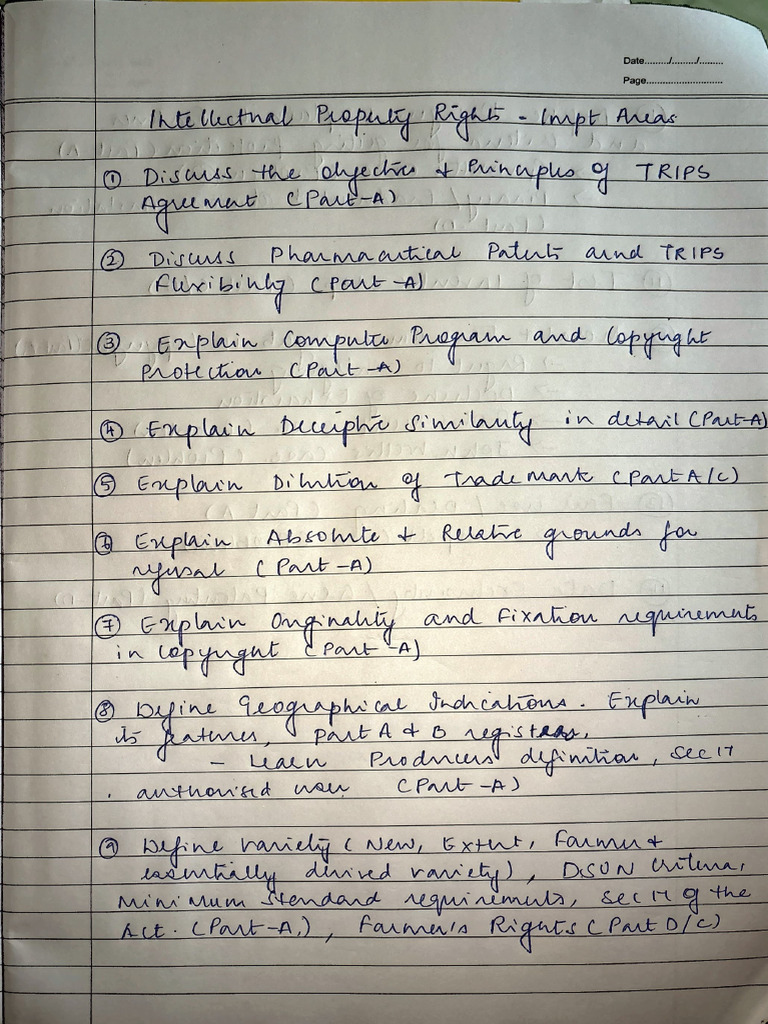 Date........./........./.........
Page............................
Intellectual Property Rights - Impt Areas
① Discuss the objectives & Principles of TRIPS
Agreement (Part-A)
② Discuss Pharmaceutical Patents and TRIPS
flexibility (Part-A)
③ Explain Computer Program and Copyright
Protection (Part-A)
④ Explain Deceptive Similarity in detail (Part-A)
⑤ Explain Dilution of Trademark (Part A/C)
⑥ Explain Absolute & Relative grounds for
refusal (Part-A)
⑦ Explain Originality and Fixation requirements
in Copyright (Part-A)
⑧ Define Geographical Indications. Explain
its features, Part A & B registers.
- Learn Producers definition, Sec 17
authorised user (Part-A)
⑨ Define variety (New, Extent, Farmer &
essentially derived variety), DSUN Criteria,
Minimum Standard requirements, Sec 17 of the
Act. (Part-A,), Farmer's Rights (Part D/C)